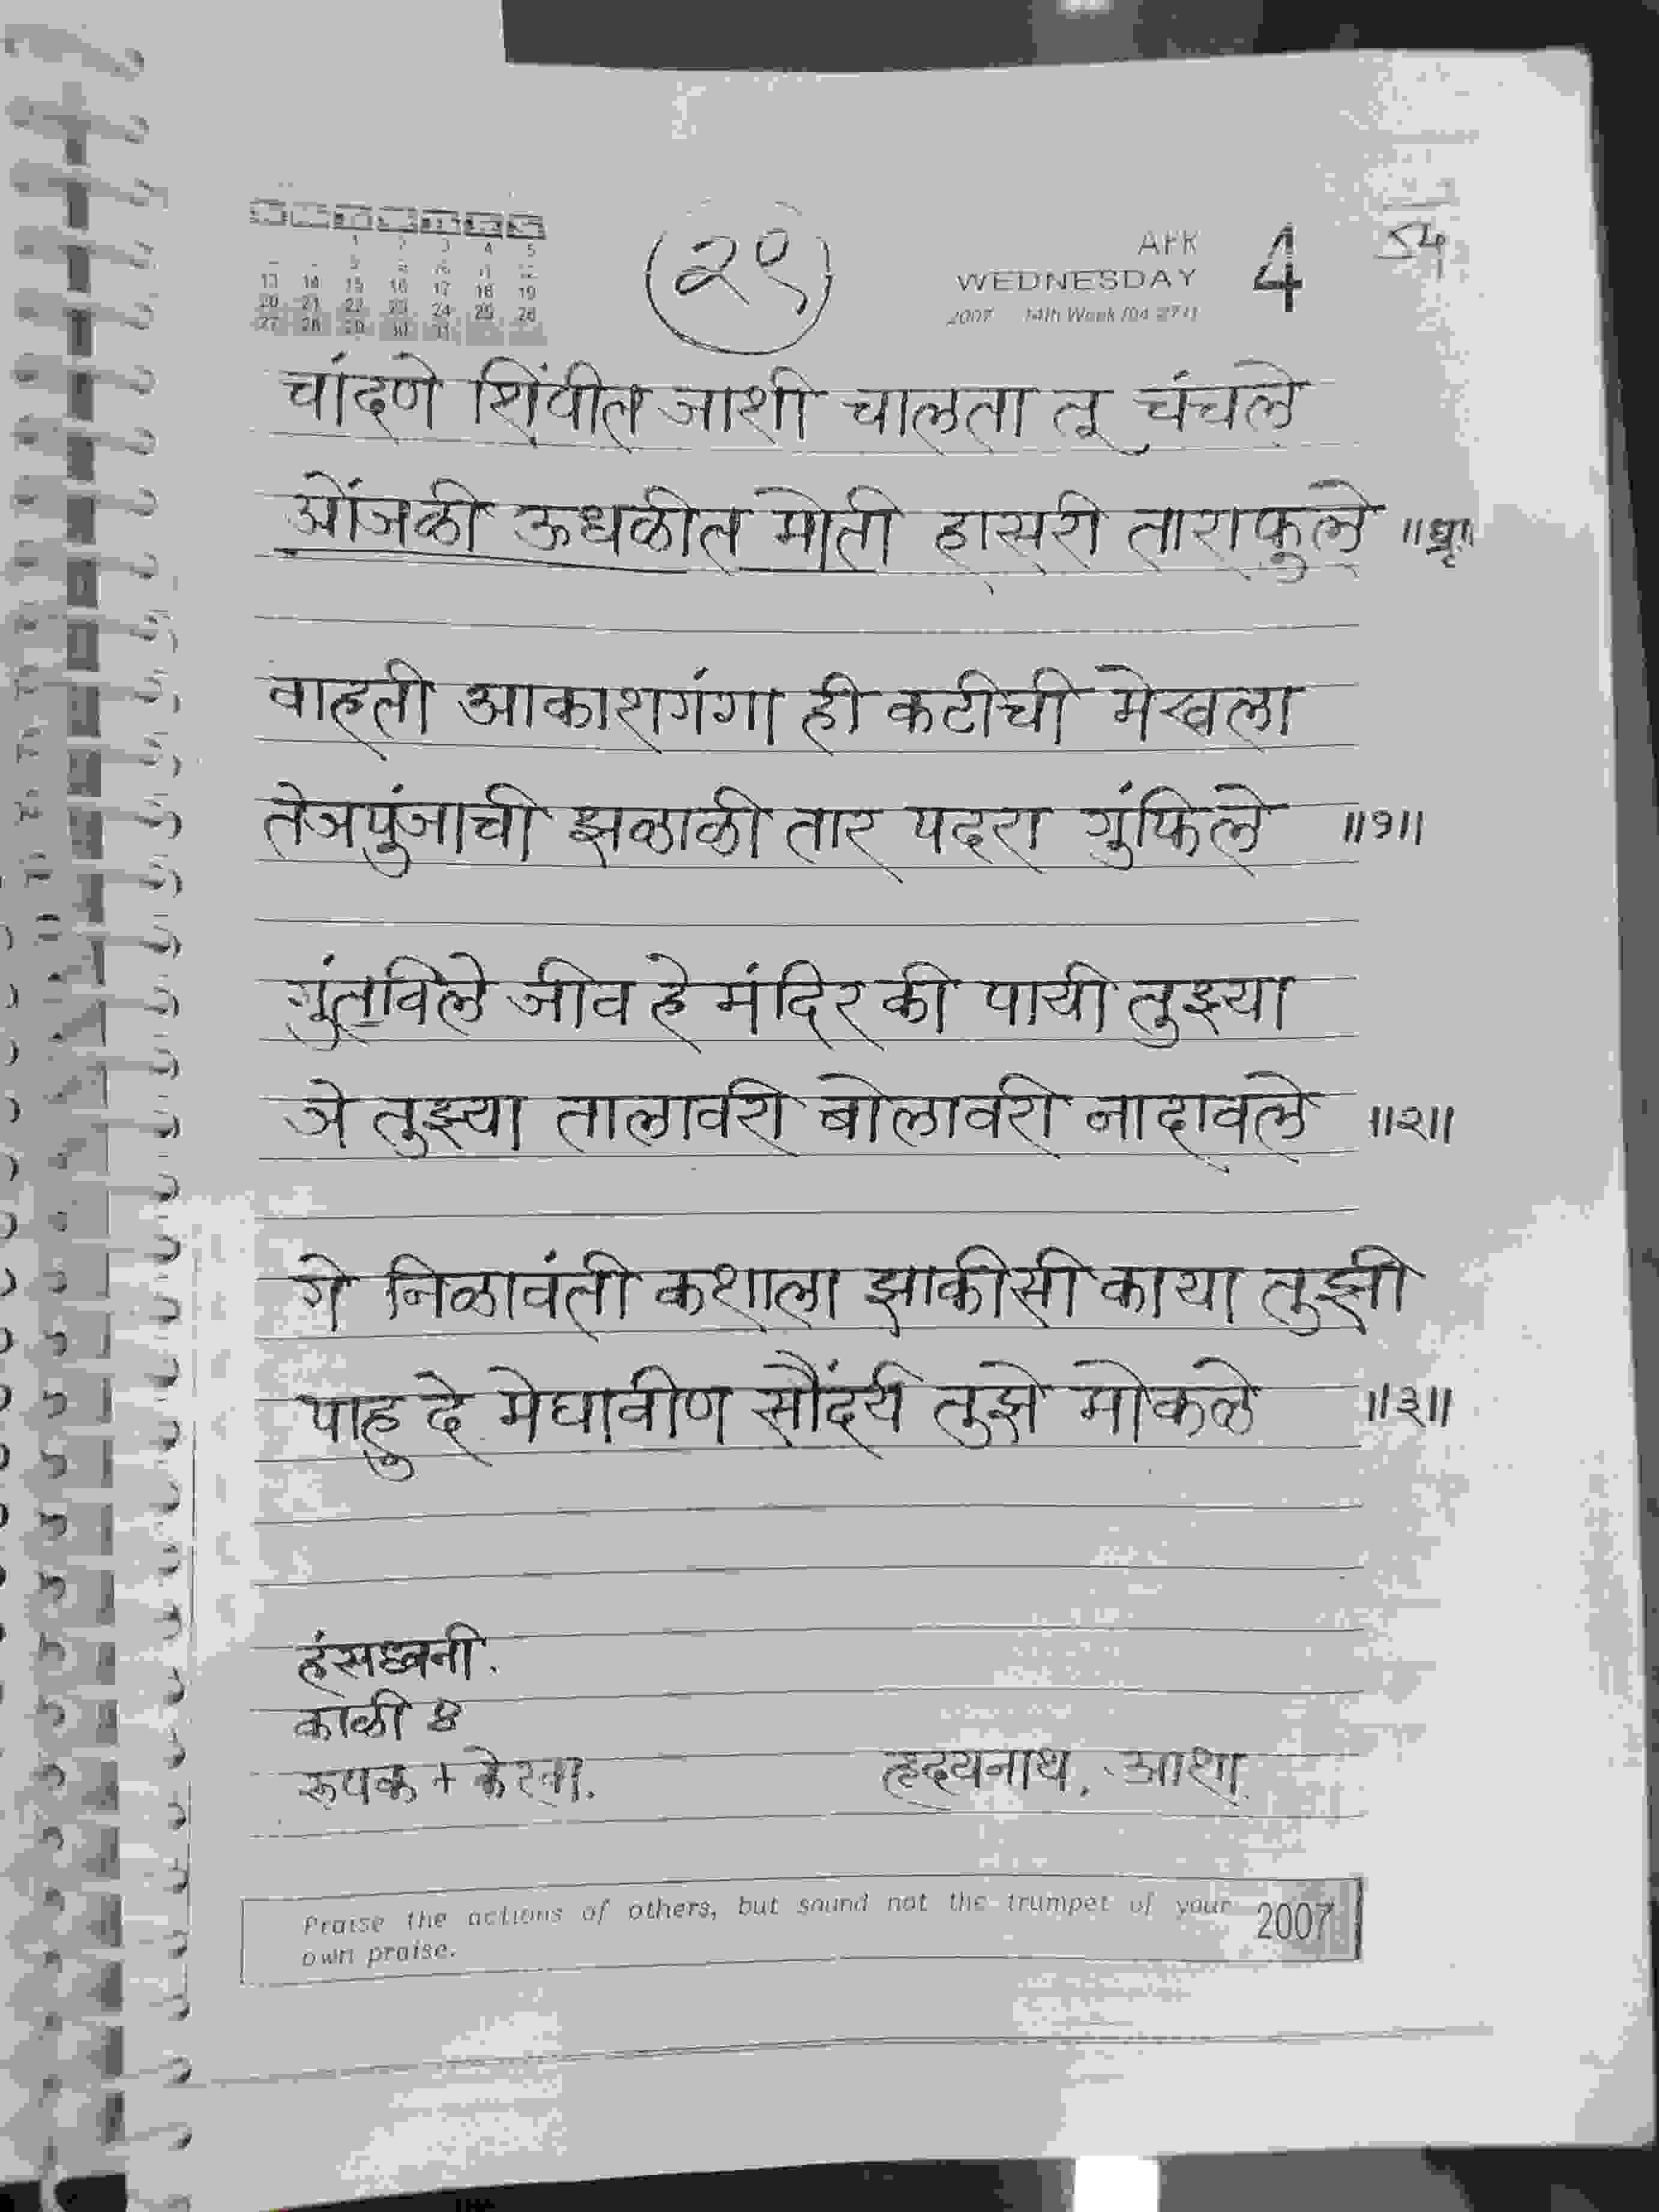 1 2 3 4 5
13 14 15 16 17 18 19
20 21 22 23 24 25 26
27 28 29 30 31
(२९)
WEDNESDAY 4
2007 14th Week
चांदणे शिंपीत जाशी चालता तू चंचले
ओंजळी ऊधळीत मोती हासरी ताराफुले ॥ध्रृ॥
वाहती आकाशगंगा ही कटीची मेखला
तेजपुंजाची झळाळी तार पदरा गुंफिले ॥१॥
गुंतविले जीव हे मंदिर की पायी तुझ्या
जे तुझ्या तालावरी बोलावरी नादावले ॥२॥
गे निळावंती कशाला झाकीसी काया तुझी
पाहु दे मेघावीण सौंदर्य तुझे मोकळे ॥३॥
हंसध्वनी.
काळी ४
रूपक + केरवा. हृदयनाथ, आशा
Praise the actions of others, but sound not the trumpet of your
own praise.
2007